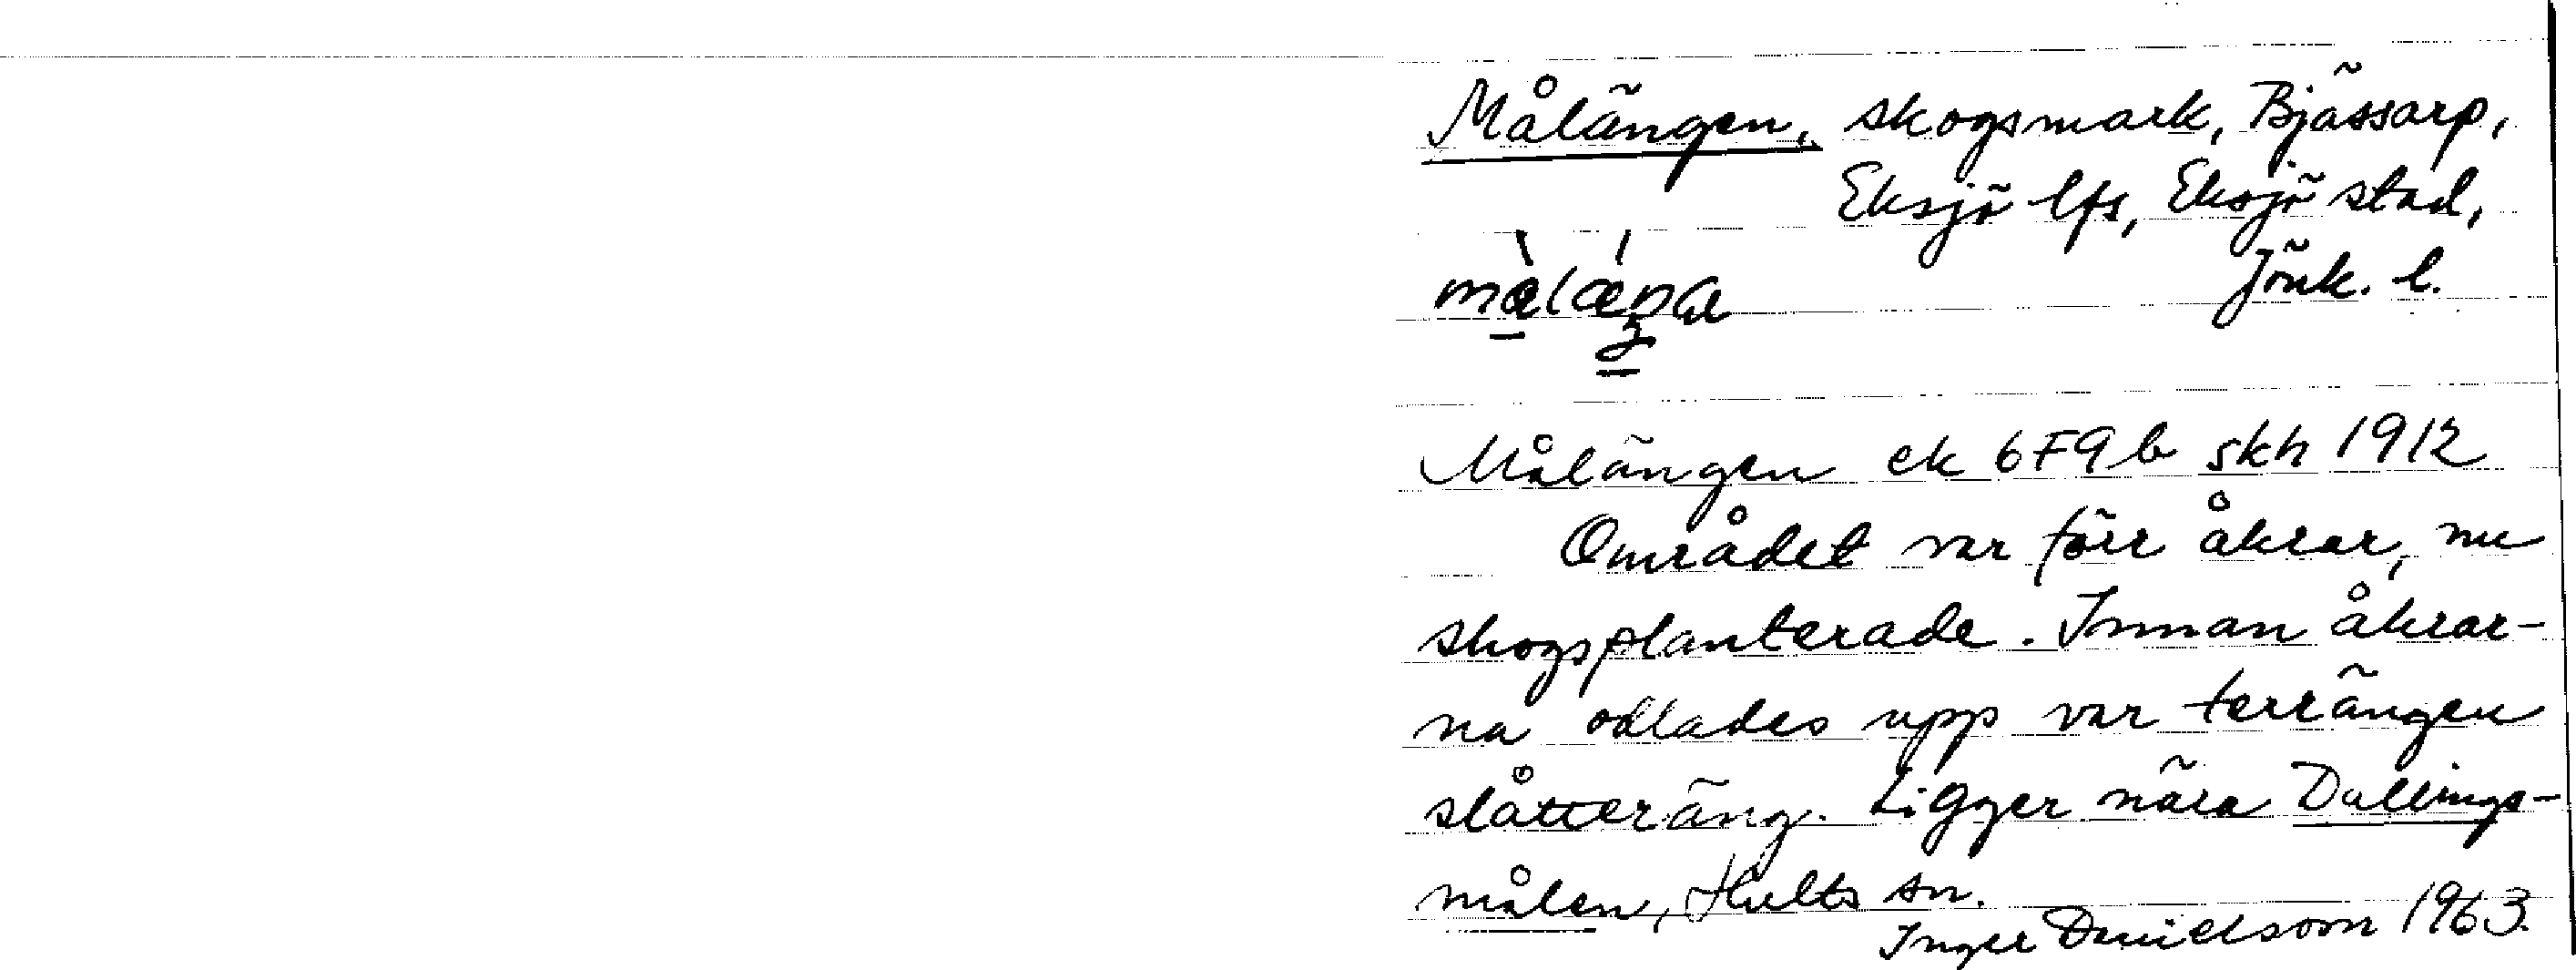 Målängen, skogsmark, Bjässarp,
Eksjö lfs, Eksjö stad,
Jönk. l.
Målängen ek 6F9b skh 1912
Området var förr åkrar, nu
skogsplanterade. Innan åkrar-
na odlades upp var terrängen
slåtteräng. Ligger nära Dullings-
målen, Hults sn.
Inger Danielsson 1963.